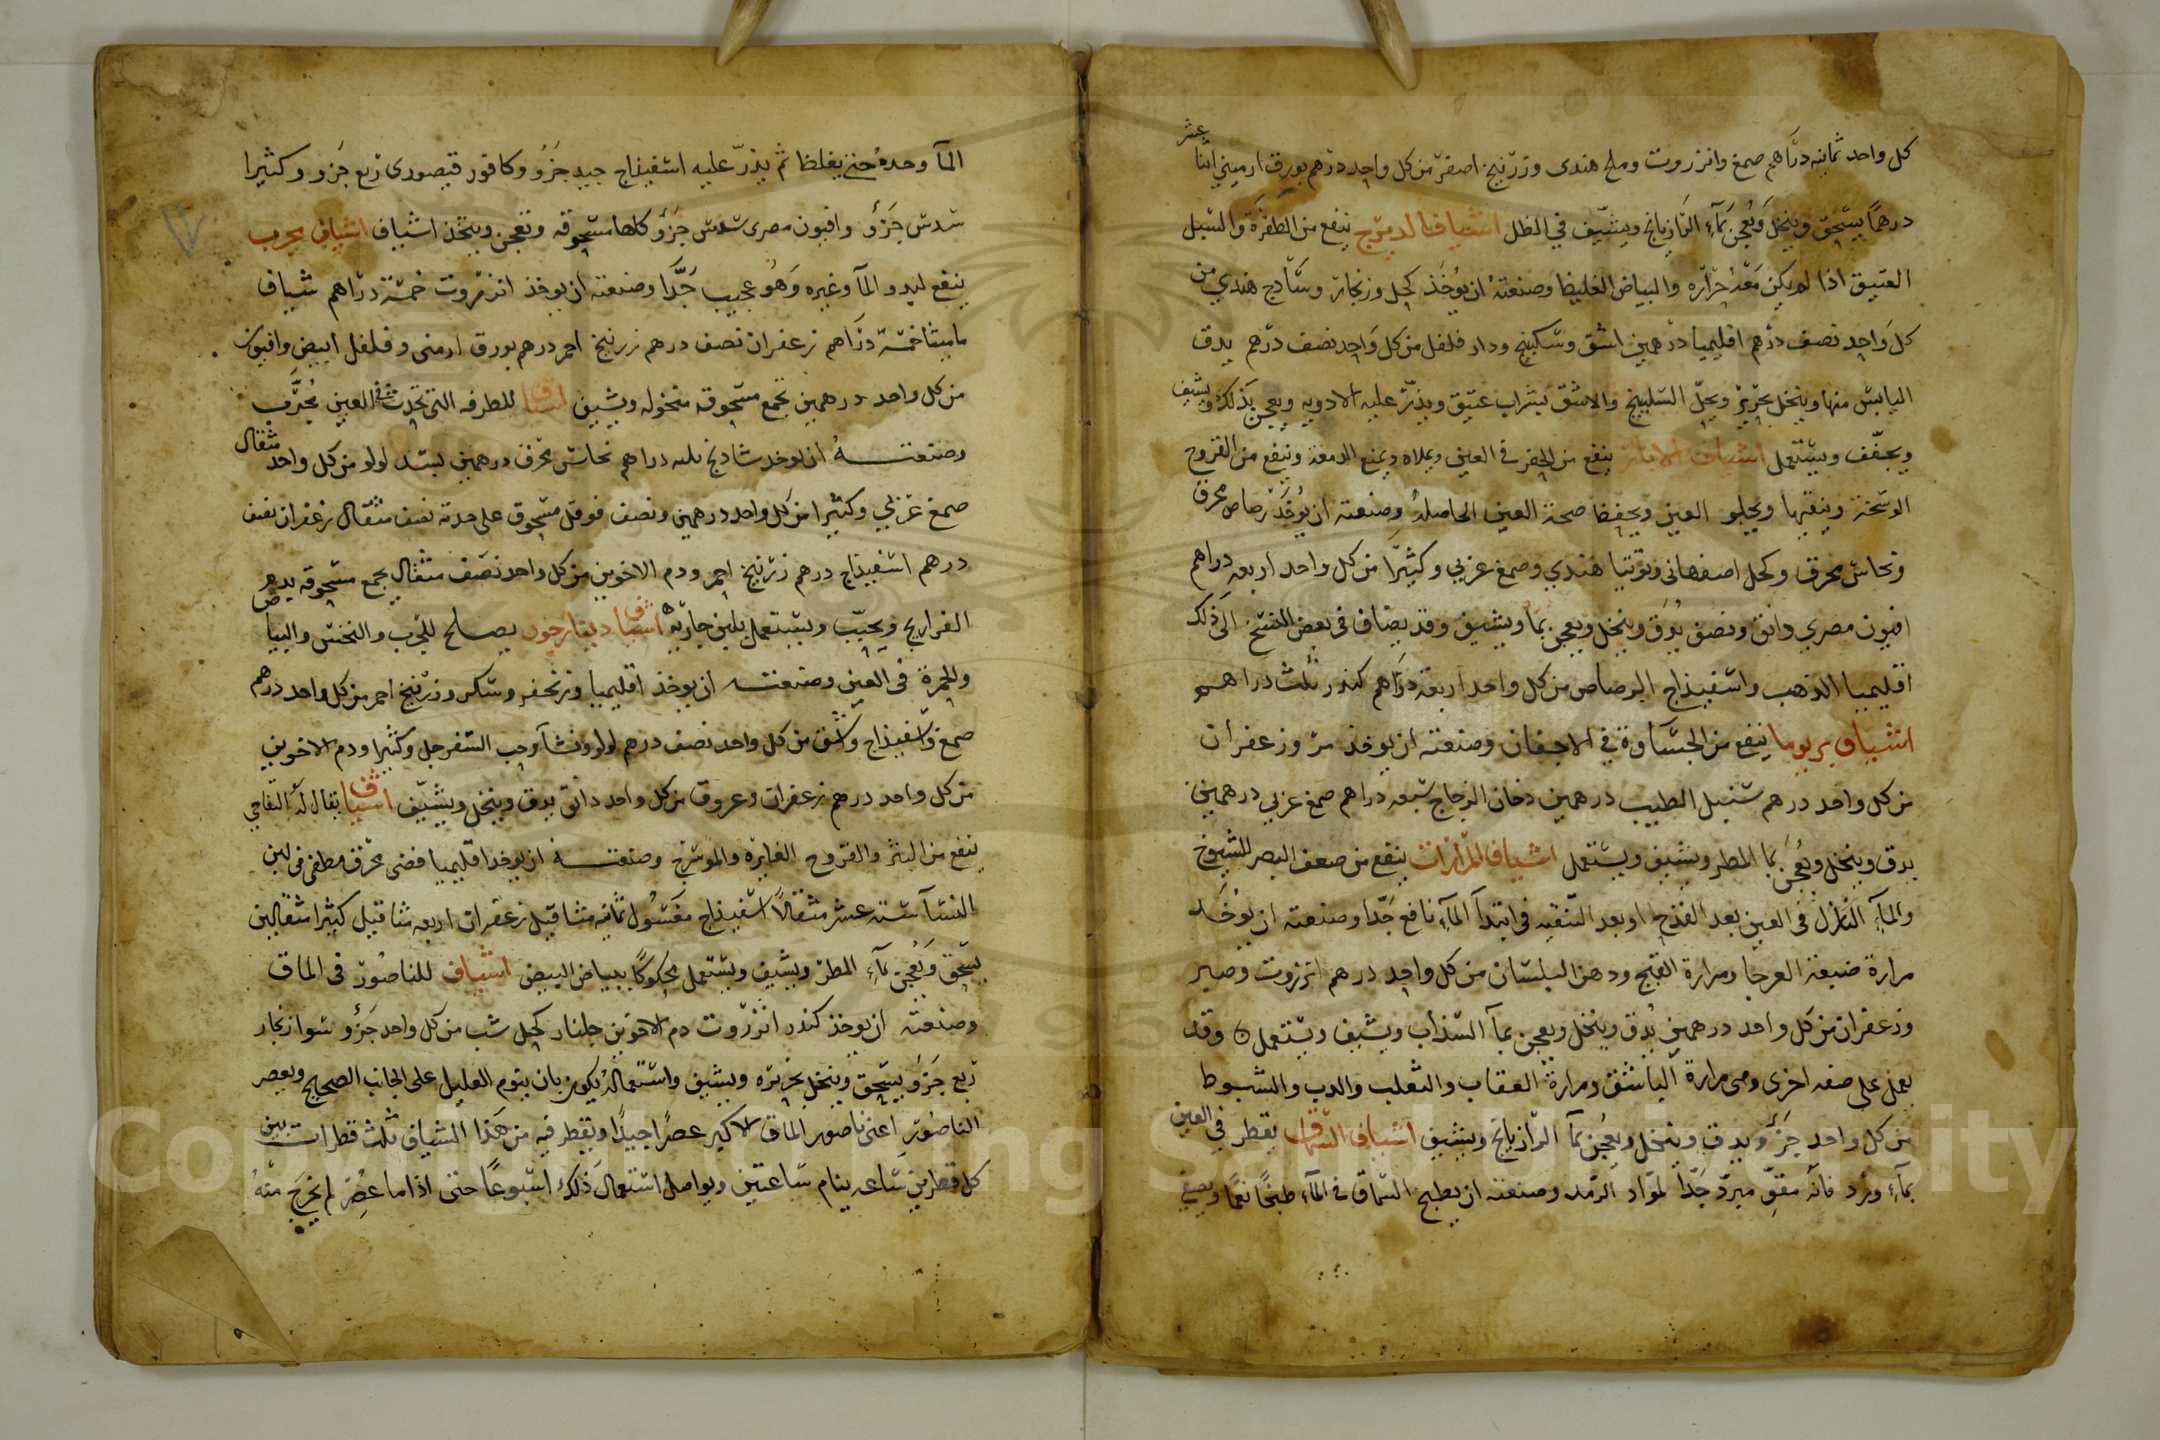 كل واحد ثمانيه دراهم صمغ وانزروت وملح هندى وزرنيخ اصفر من كل واحد درهم بورق ارميني اثنا عشر
درهما يسحق وينخل ويعجن بماء الرازيانج ويشيف في الظل اشياف الديزج ينفع من الظفرة والسبل
العتيق اذا لم يكن معه حرارة والبياض الغليظ وصنعته ان يؤخذ كحل وزنجار وساذج هندي من
كل واحد نصف درهم اقليميا درهمين اشق وسكبينج ودار فلفل من كل واحد نصف درهم يدق
اليابس منها وينخل بحريره ويحل السكبينج والاشق بشراب عتيق ويذر عليه الادويه ويعجن بذلك ويشيف
ويجفف ويستعمل اشياف الابار ينفع من الحفر في العين ويملاه ويمنع الدمعة وينفع من القروح
الوسخة وينقيها ويجلو العين ويحفظ صحة العين الحاصله وصنعته ان يؤخذ رصاص محرق
ونحاس محرق وكحل اصفهانى وتوتيا هندي وصمغ عربي وكثيرا من كل واحد اربعه دراهم
افيون مصري دانق ونصف يدق وينخل ويعجن بما ويشيف وقد يضاف في بعض النسخ الى ذلك
اقليميا الذهب واسفيذاج الرصاص من كل واحد اربعة دراهم كندر ثلث دراهم
اشياف بربوما ينفع من الجساوة في الاجفان وصنعته ان يوخذ مر وزعفران
من كل واحد درهم سنبل الطيب درهمين دخان الزجاج سبعه دراهم صمغ عربي درهمين
يدق وينخل ويعجن بما المطر ويشيف ويستعمل اشياف المرارات ينفع من ضعف البصر للشيوخ
والماء النازل فى العين بعد القدح او بعد التنقيه فى ابتدآ الماء نافع جدا وصنعته ان يوخذ
مرارة ضبعة العرجا ومرارة القبج ودهن البلسان من كل واحد درهم انزروت وصبر
وزعفران من كل واحد درهمين يدق وينخل ويعجن بمآ السذاب ويشيف ويستعمل ۞ وقد
يعمل على صفه اخرى وهى مرارة الباشق ومرارة العقاب والثعلب والدب والشبوط
من كل واحد جزؤ ويدق وينخل ويعجن بمآ الرازيانج ويشيف اشياف السماق يقطر في العين
بماء ورد فانه مقو مبرد جدا لمواد الرمد وصنعته ان يطبخ السماق في الماء طبخا نعما ويصفى
المآ وحده حتى يغلظ ثم يذر عليه اسفيذاج جيد جزؤ وكافور قيصورى ربع جزو وكثيرا
سدس جزؤ وافيون مصرى سدس جزؤ كلها مسحوقه وتعجن ويتخذ اشياف اشياف مجرب
ينفع لبدو المآ وغيره وهو عجيب جدا وصنعته ان يوخذ انزروت خمسة دراهم شياف
ماميثا خمسة دراهم زعفران نصف درهم زرنيخ احمر درهم بورق ارمنى وفلفل ابيض وافيون
من كل واحد درهمين تجمع مسحوقه منخوله ويشيف اشياف للطرفه التى تحدث في العين مجرب
وصنعته ان يوخذ شادنج ثلثه دراهم نحاس محرق درهمين بسد لولو من كل واحد مثقال
صمغ عربي وكثيرا من كل واحد درهمين ونصف فوفل مسحوق على حدته نصف مثقال زعفران نصف
درهم اسفيذاج درهم زرنيخ احمر ودم الاخوين من كل واحد نصف مثقال يجمع مسحوقه بدم
الفراريج ويحبب ويستعمل بلبن جاريه اشياف ديفارجون يصلح للجرب والنخس والبياض
والحمرة فى العين وصنعته ان يوخذ اقليميا وزنجفر وسكر وزرنيخ احمر من كل واحد درهم
صمغ واسفيذاج واشق من كل واحد نصف درهم لولو ونشآ وحب السفرجل وكثيرا ودم الاخوين
من كل واحد درهم زعفران وعروق من كل واحد دانق يدق وينخل ويشيف اشياف يقال له التفاحي
ينفع من البثر والقروح الغايرة والموسرج وصنعته ان يوخذ اقليميا فضى محرق مطفى فى لبن
النسآ ستة عشر مثقالا اسفيذاج مغسول ثمانيه مثاقيل زعفران اربعه مثاقيل كثيرا مثقالين
يسحق ويعجن بماء المطر ويشيف ويستعمل محكوكا ببياض البيض اشياف للناصور فى الماق
وصنعته ان يوخذ كندر انزروت دم الاخوين جلنار كحل شب من كل واحد جزؤ سوا زنجار
ربع جزو يسحق وينخل بحريره ويشيف واستعماله يكون بان ينوم العليل على الجانب الصحيح ويعصر
الناصور اعنى ناصور الماق الاكبر عصرا جيدا ويقطر فيه من هذا الشياف ثلث قطرات بين
كل قطرتين ساعه ينام ساعتين ويواصل استعمال ذلك اسبوعا حتى اذا ما عصر لم يخرج منه
١٧
٩
Copyright © King Saud University